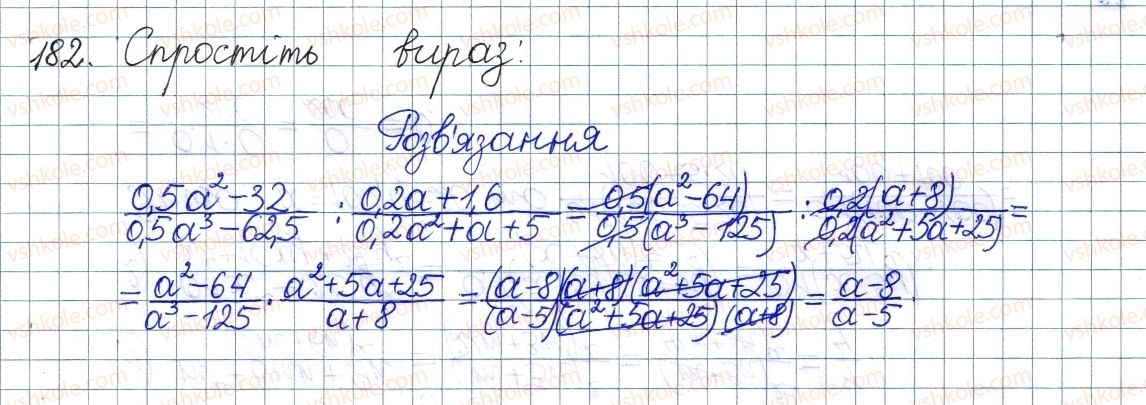 182. Спростіть вираз:
Розв'язання
(0,5a² − 32)/(0,5a³ − 62,5) : (0,2a + 1,6)/(0,2a² + a + 5) = 0,5(a² − 64)/0,5(a³ − 125) : 0,2(a + 8)/0,2(a² + 5a + 25) =
= (a² − 64)/(a³ − 125) · (a² + 5a + 25)/(a + 8) = (a − 8)(a + 8)(a² + 5a + 25)/(a − 5)(a² + 5a + 25)(a + 8) = (a − 8)/(a − 5).